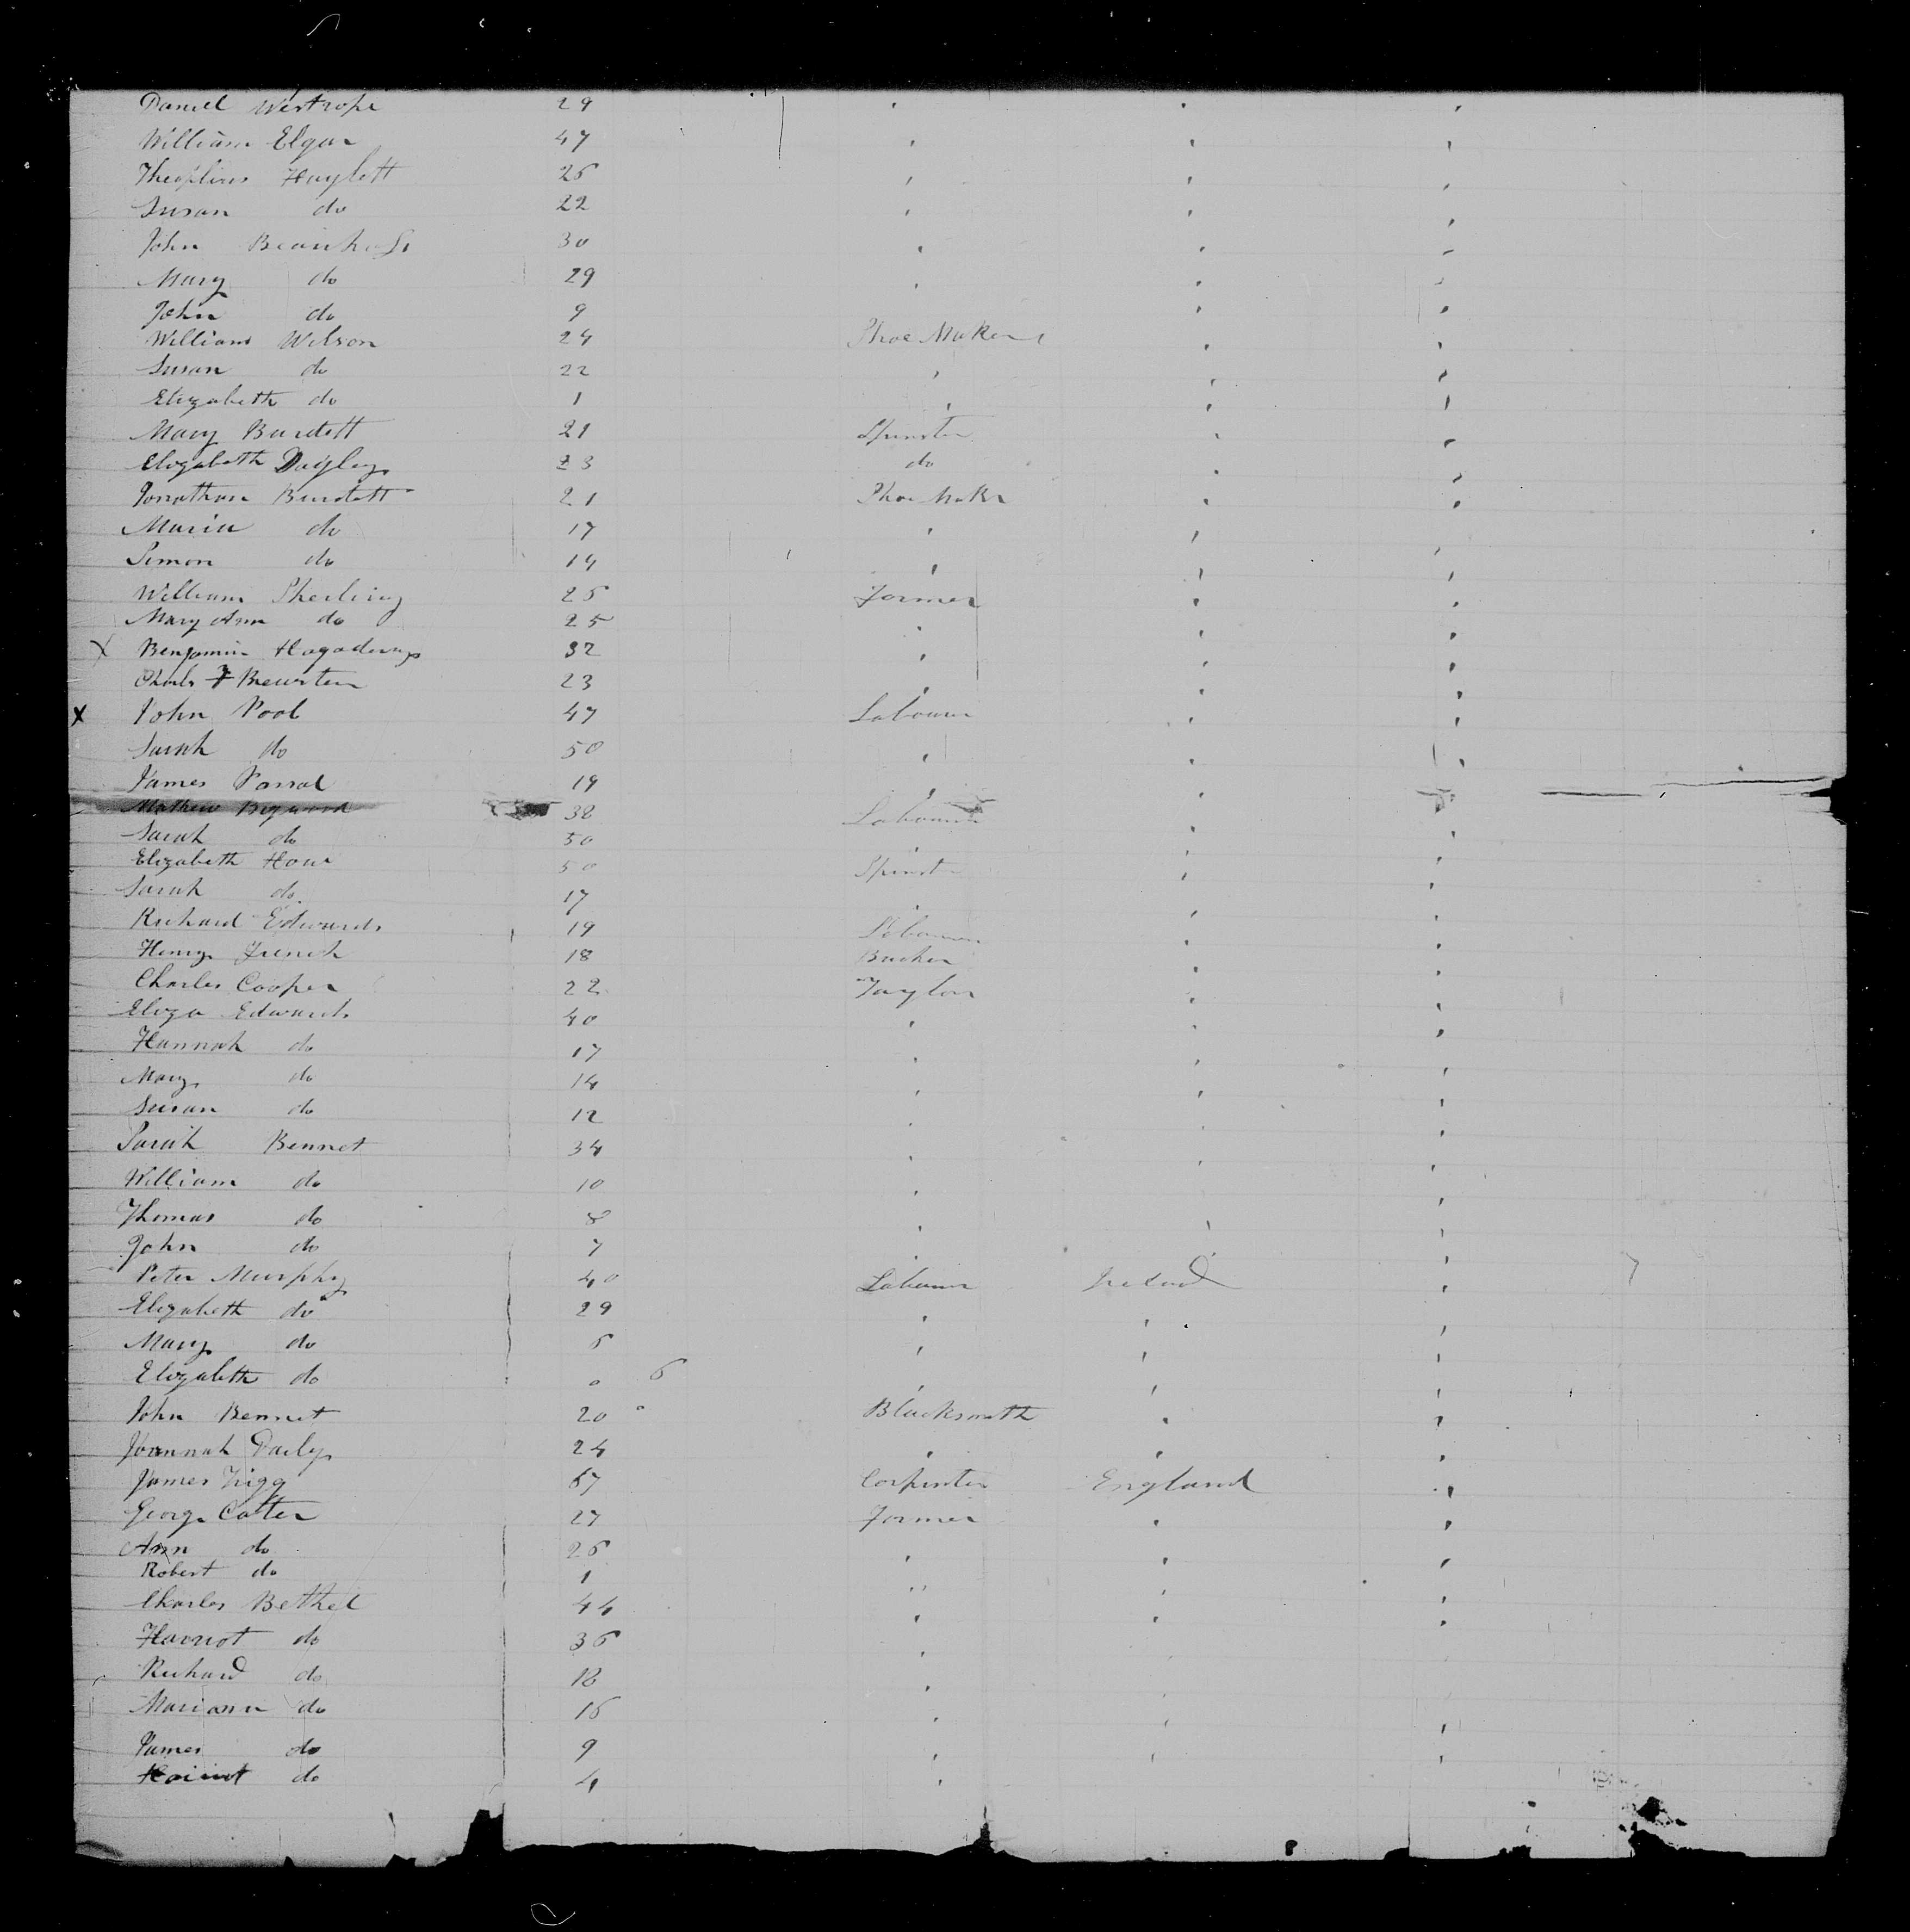 Daniel Westrope 29 " " "
William Elgar 47 " " "
Theoplius Haylett 26 " " "
Susan do 22 " " "
John 30 " " "
Mary do 29 " " "
John do 9 " "
William Wilson 24 Shoe Maker " "
Susan do 22 " " "
Elizabeth do 1 " " "
Mary Burdett 21 Spinster " "
Elizabeth Dayley 23 do " "
Jonathan Burdett 21 Shoe Maker " "
Maria do 17 " " "
Simon do 14 " " "
William Sherling 25 Former " "
Mary Ann do 25 " " "
x Benjamin 32 " " "
Charls F Brewster 23 " " "
x John Pool 47 Labourer " "
Sarah do 50 " " "
James 19 " "
Mathew Bigwood 38 Labourer "
Sarah do 50 " " "
Elizabeth 50 Spinst " "
Sarah do 17 " " "
Richard Edwards 19 Labourer " "
Henry French 18 " "
Charles Cooper 22 Taylor " "
Eliza Edwards 40 " " "
Hannah do 17 " " "
Mary do 14 " " "
Susan do 12 " " "
Sarah Bennet 34 " " "
William do 10 " "
Thomas do 8 " " "
John do 7 " " "
Peter Murphy 40 Labourer Ireland "
Elizabeth do 29 " " "
Mary do 5 " " "
Elizabeth do 0 6 " " "
John Bennet 20 Blacksmith " "
Joannah Daily 24 " " "
James Trigg 67 Corpenter England "
George Cotter 27 Former " "
Ann do 26 " " "
Robert do 1 " "
Charles Bethel 44 " " "
Harriot do 36 "
Richard do 18 "
Mariann do 16 " "
James do 9 " " "
Harriot do 4 "